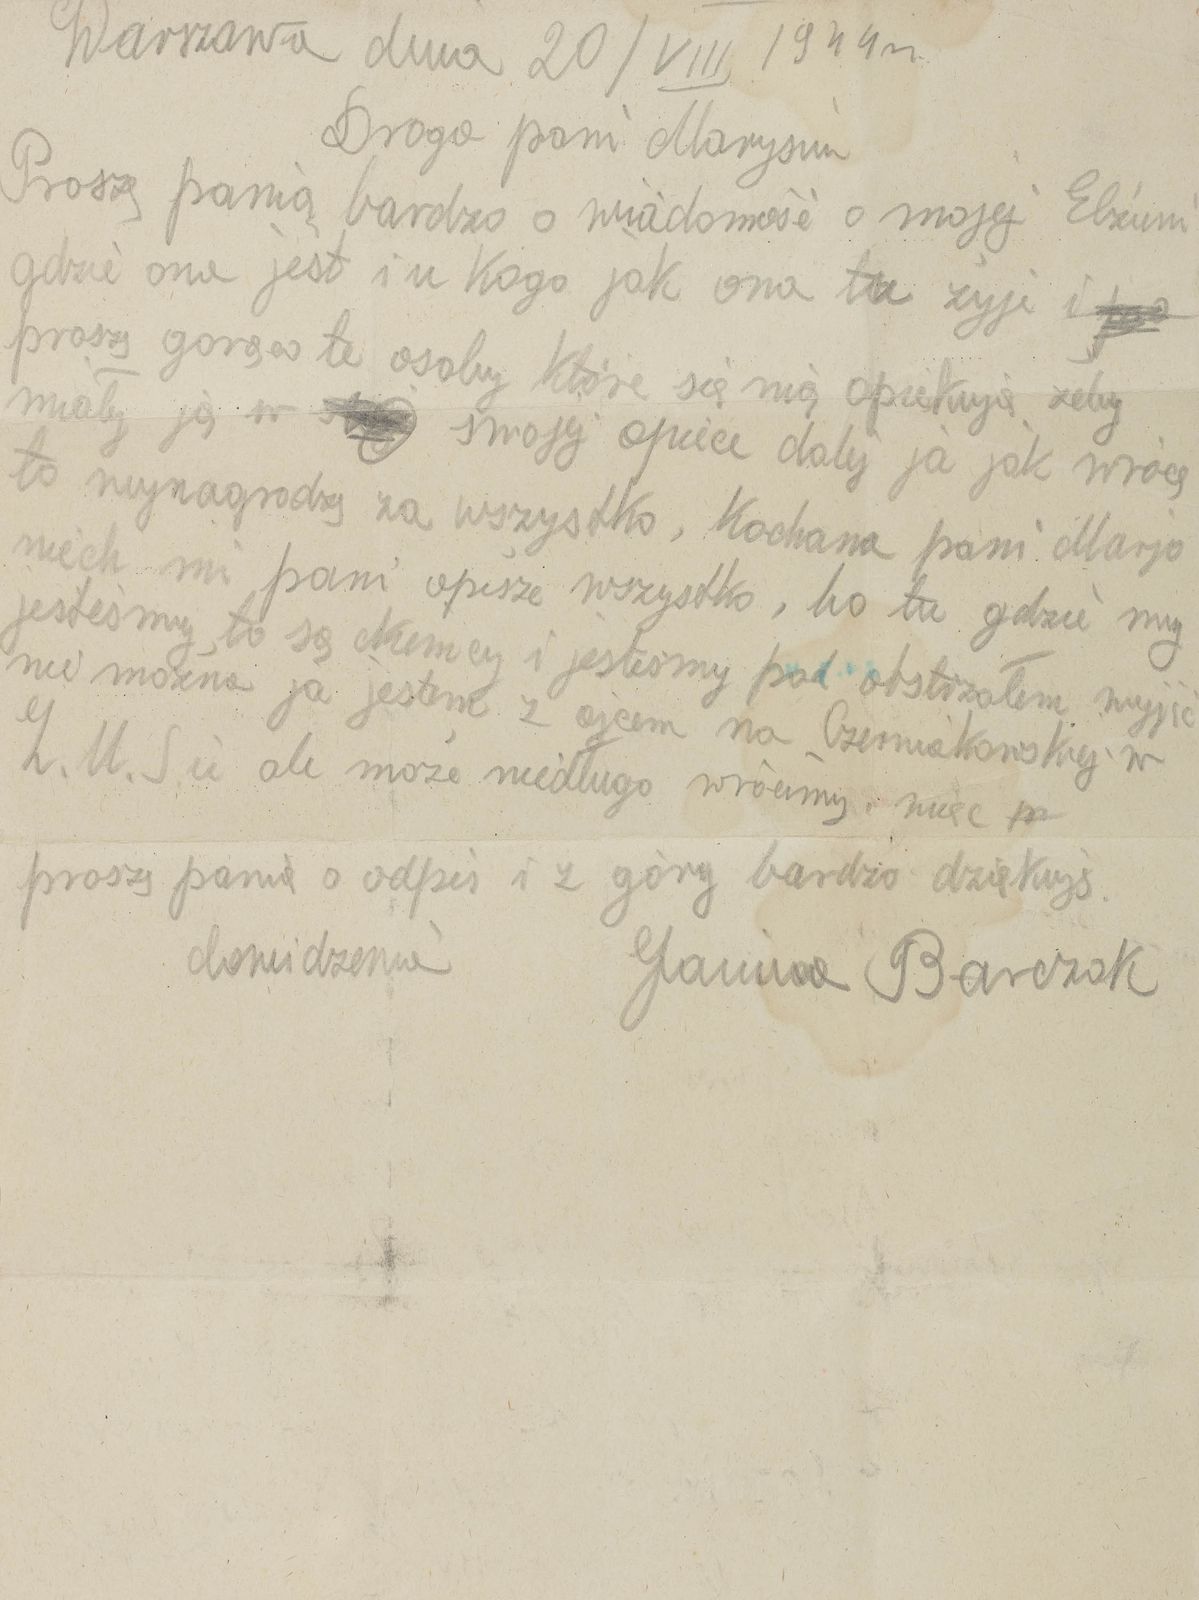 Warszawa dnia 20/VIII 1944 r.
Droga pani Marysiu
Proszę panią bardzo o wiadomość o mojej Elżuni
gdzie ona jest i u kogo jak ona tu żyje i
proszę gorąco te osoby które się nią opiekują żeby
miały ją w swojej opiece dalej ja jak wrócę
to wynagrodzę za wszystko, Kochana pani Marjo
niech mi pani opisze wszystko, bo tu gdzie my
jesteśmy to są niemcy i jesteśmy pod obstrzałem wyjść
nie można ja jestem z ojcem na Czerniakowskiej w
Z.U.S ie ale może niedługo wrócimy, więc
proszę panią o odpis i z góry bardzo dziękuję.
dowidzenia Janina Barczak